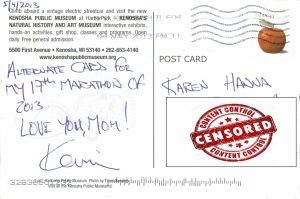 5/4/2013
Climb aboard a vintage electric streetcar and visit the new
KENOSHA PUBLIC MUSEUM at HarborPark • KENOSHA'S
NATURAL HISTORY AND ART MUSEUM Interactive exhibits,
hands-on activities, gift shop, classes and programs. Open
daily. Free general admission.
5500 First Avenue • Kenosha, WI 53140 • 262-653-4140
www.kenoshapublicmuseum.org
POST CARD
ALTERNATE CARD FOR
MY 17th MARATHON OF
2013
LOVE YOU MOM!
Kevin
KAREN HANNA
CONTENT CONTROL
CENSORED
CONTENT CONTROL
Kenosha Public Museum. Photo by